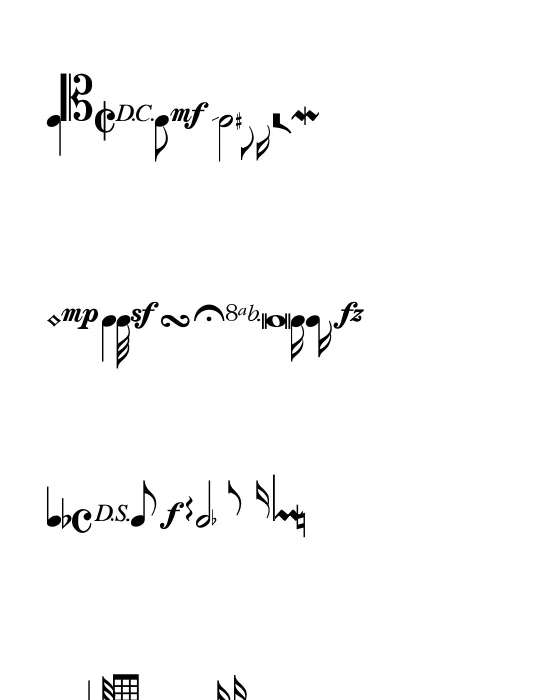 D.C. mf
mp sf 8ab. fz
D.S. f